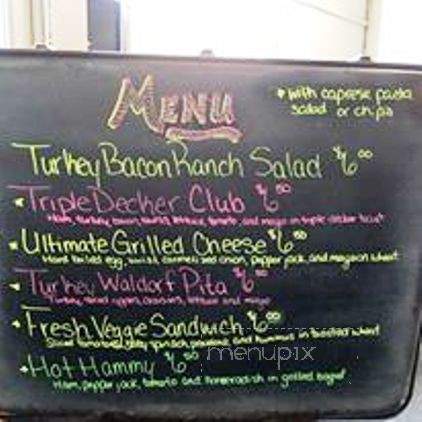 MENU
* with caprese pasta
salad or chips
Turkey Bacon Ranch Salad $6.00
* Triple Decker Club $6.50
Ham, turkey, bacon, swiss, lettuce, tomato, and mayo on triple-decker toast
* Ultimate Grilled Cheese $6.50
Hard boiled egg, swiss, caramelized onion, pepper jack, and mayo on wheat
* Turkey Waldorf Pita $6.50
Turkey, apples, craisins, lettuce and mayo
* Fresh Veggie Sandwich $6.00
Sliced tomatoes, spinach, and hummus on toasted wheat
* Hot Hammy $6.50
Ham, pepper jack, tomato and horseradish on grilled bagel
menupix